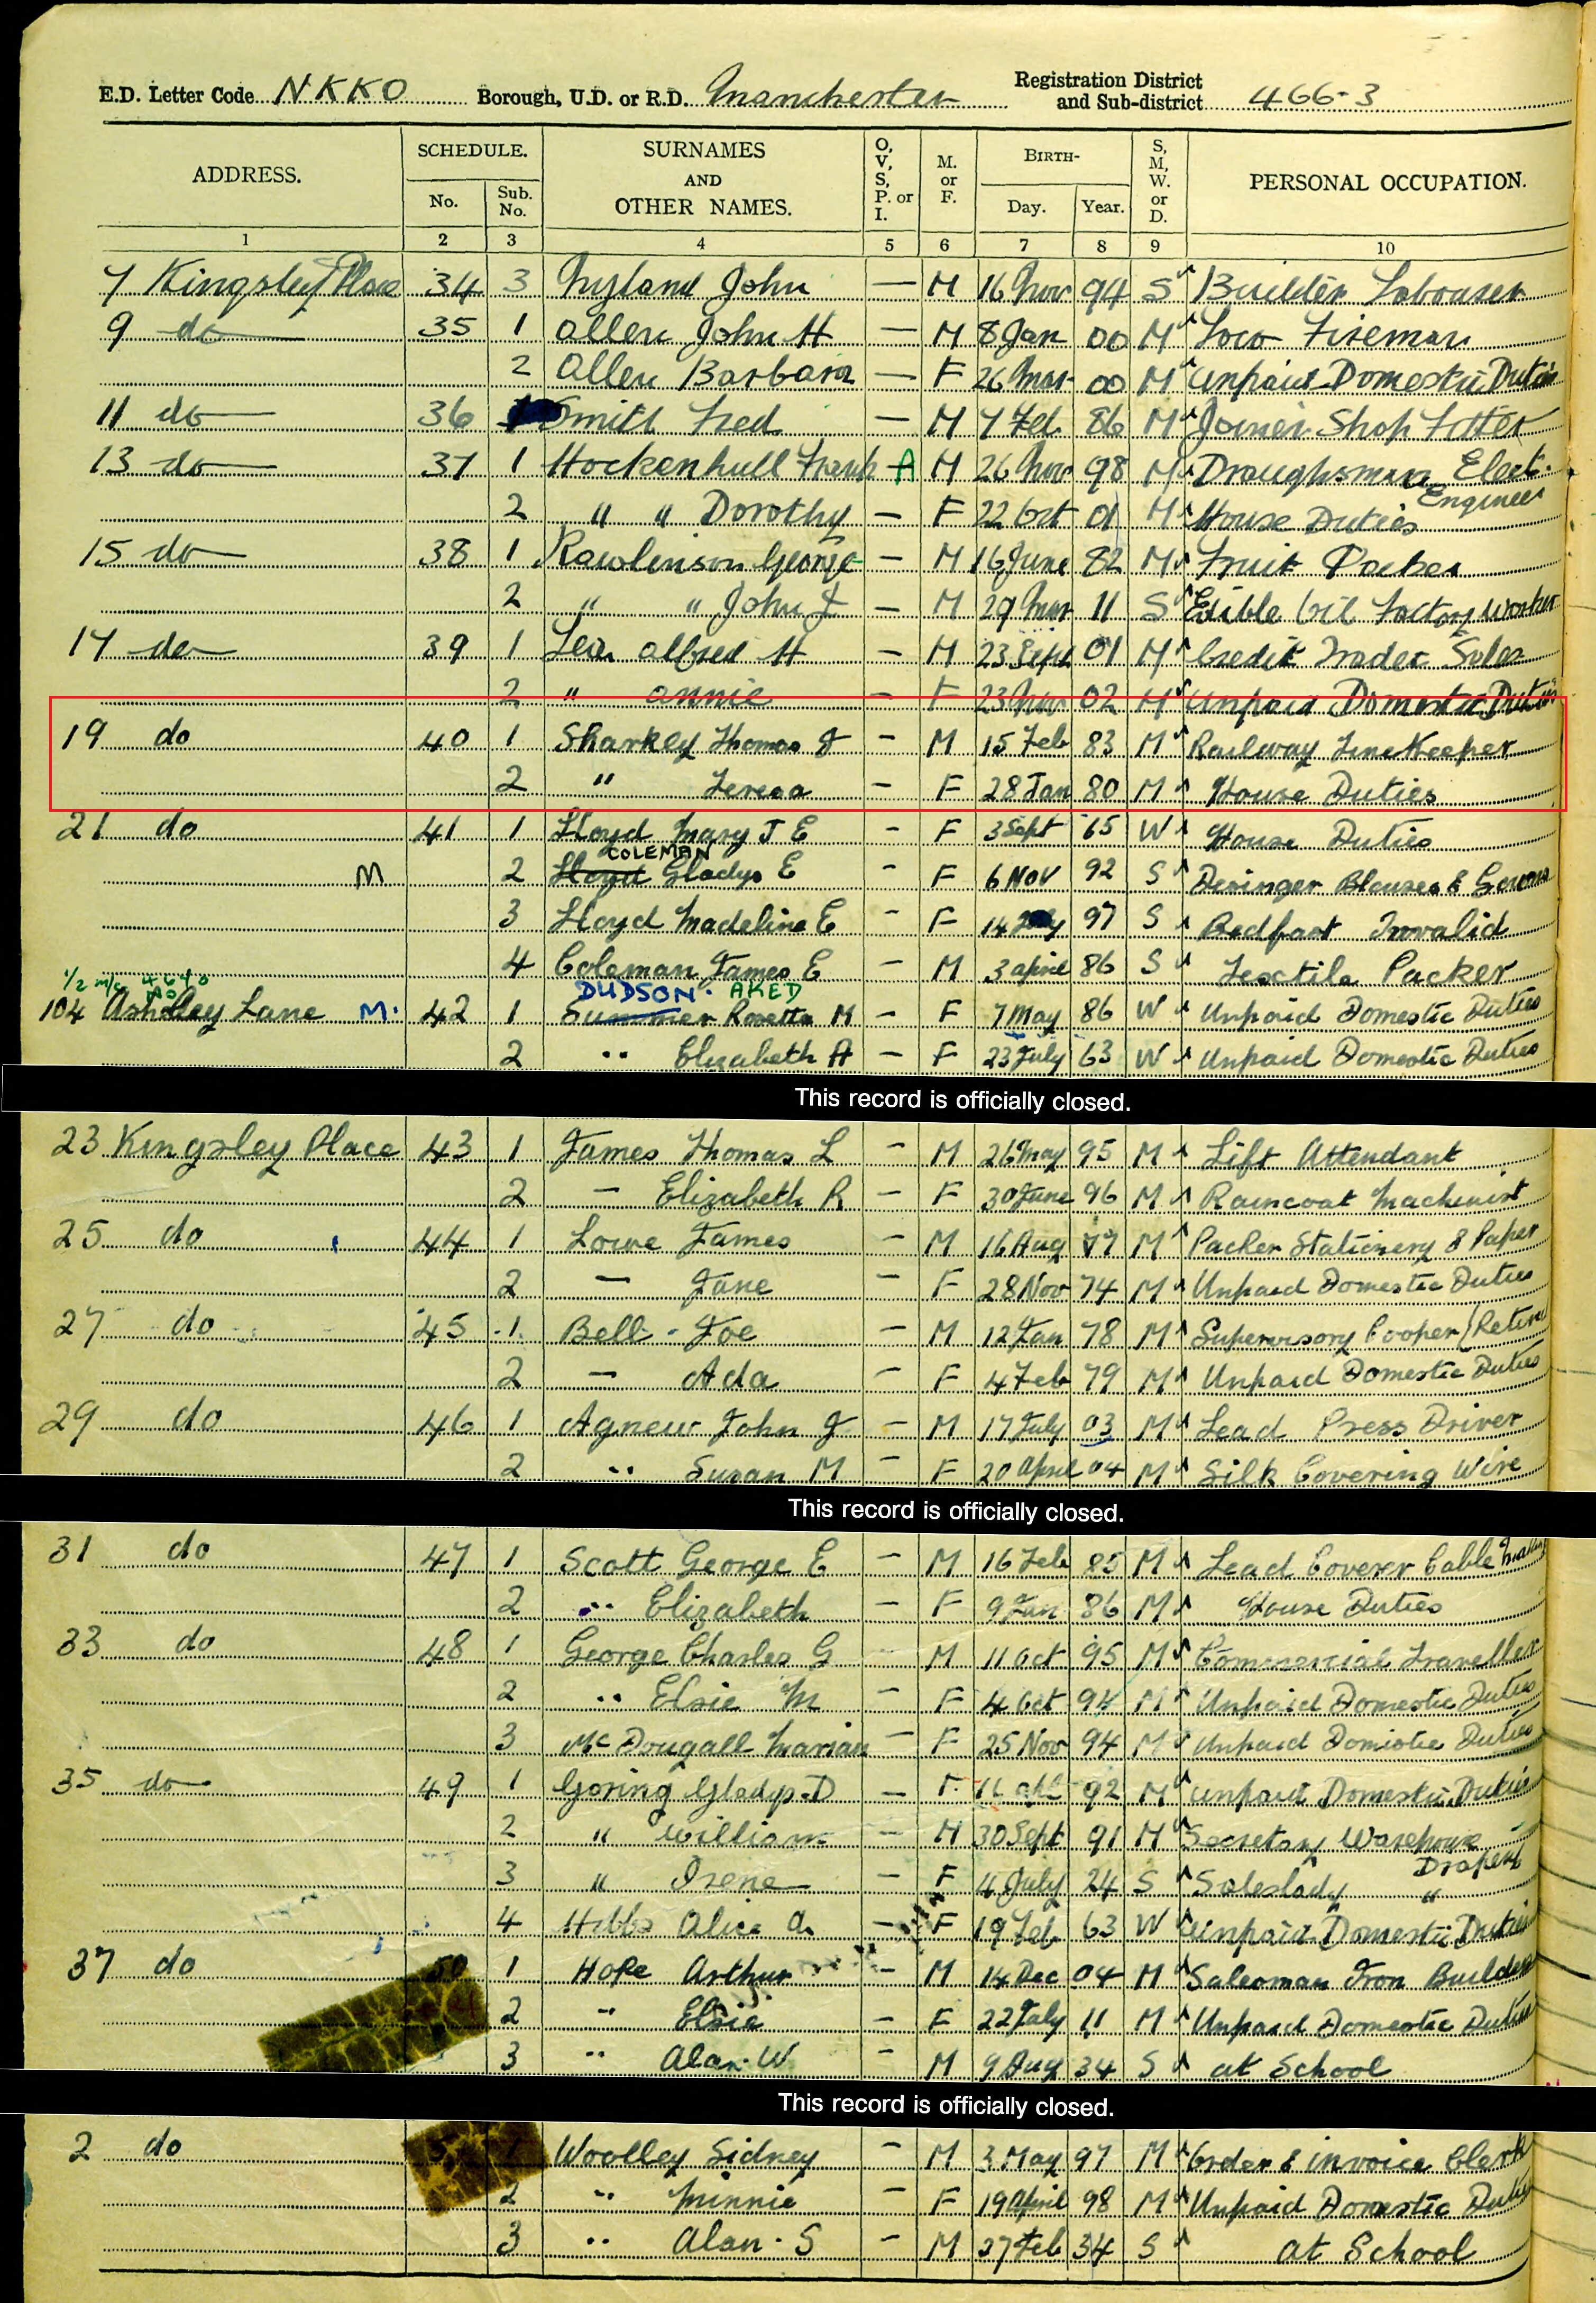 E.D. Letter Code NKKO Borough, U.D. or R.D. Manchester Registration District and Sub-district 466-3
ADDRESS. SCHEDULE. No. Sub. No. SURNAMES AND OTHER NAMES. O, V, S, P. or I. M. or F. BIRTH- Day. Year. S, M, W. or D. PERSONAL OCCUPATION.
1 2 3 4 5 6 7 8 9 10
7 Kingsley Place 34 3 Hyland John — M 16 Nov 94 S Builder Labourer
9 do 35 1 Allen John H — M 8 Jan 00 M Loco Fireman
2 Allen Barbara — F 26 Mar 00 M Unpaid Domestic Duties
11 do 36 1 Smith Fred — M 7 Feb 86 M Joiner Shop Fitter
13 do 37 1 Hockenhull Frank A M 26 Nov 98 M Draughsman Elect. Engineer
2 " " Dorothy — F 22 Oct 01 M House Duties
15 do 38 1 Rawlinson George — M 16 June 82 M Fruit Packer
2 " " John J — M 29 Mar 11 S Edible Oil Factory Worker
17 do 39 1 Lea Alfred H — M 23 Sept 01 M Credit Trader Sales
2 " Annie — F 23 Nov 02 M Unpaid Domestic Duties
19 do 40 1 Sharkey Thomas J - M 15 Feb 83 M Railway Keeper
2 " Teresa - F 28 Jan 80 M House Duties
21 do 41 1 Lloyd Mary J E - F 3 Sept 65 W House Duties
COLEMAN
M 2 Lloyd Gladys E - F 6 Nov 92 S Designer Blouses & Gowns
3 Lloyd Madeline E - F 14 July 97 S Bedfast Invalid
4 Coleman James E - M 3 April 86 S Textile Packer
DUDSON. AKED
104 Ashley Lane M. 42 1 Summer Rosetta M - F 7 May 86 W Unpaid Domestic Duties
2 " Elizabeth A - F 23 July 63 W Unpaid Domestic Duties
This record is officially closed.
23 Kingsley Place 43 1 James Thomas L - M 26 May 95 M Lift Attendant
2 — Elizabeth R - F 30 June 96 M Raincoat Machinist
25 do 44 1 Lowe James - M 16 Aug 77 M Packer Stationery & Paper
2 — Jane - F 28 Nov 74 M Unpaid Domestic Duties
27 do 45 1 Bell Joe - M 12 Jan 78 M Supervisory Cooper (Retired
2 — Ada - F 4 Feb 79 M Unpaid Domestic Duties
29 do 46 1 Agnew John J - M 17 July 03 M Lead Press Driver
2 " Susan M - F 20 April 04 M Silk Covering Wire
This record is officially closed.
31 do 47 1 Scott George E - M 16 Feb 85 M Lead Coverer Cable
2 " Elizabeth - F 9 Jan 86 M House Duties
33 do 48 1 George Charles G - M 11 Oct 95 M Commercial Traveller
2 " Elsie M - F 4 Oct 94 M Unpaid Domestic Duties
3 McDougall Marian - F 25 Nov 94 M Unpaid Domestic Duties
35 do 49 1 Goring Gladys D - F 92 M Unpaid Domestic Duties
2 " William - M 30 Sept 91 M Secretary Warehouse Drapery
3 " Irene F 4 July 24 S Saleslady "
4 Hibbs Alice A - F 19 Feb 63 W Unpaid Domestic Duties
37 do 50 1 Hope Arthur - M 14 Dec 04 M Salesman Iron Builders
2 " Elsie - F 22 July 11 M Unpaid Domestic Duties
3 " Alan W - M 9 Aug 34 S at School
This record is officially closed.
2 do 5 1 Woolley Sidney - M 3 May 97 M Order & invoice Clerk
2 " Minnie F 19 April 98 M Unpaid Domestic Duties
3 " Alan S - M 27 Feb 34 S at School